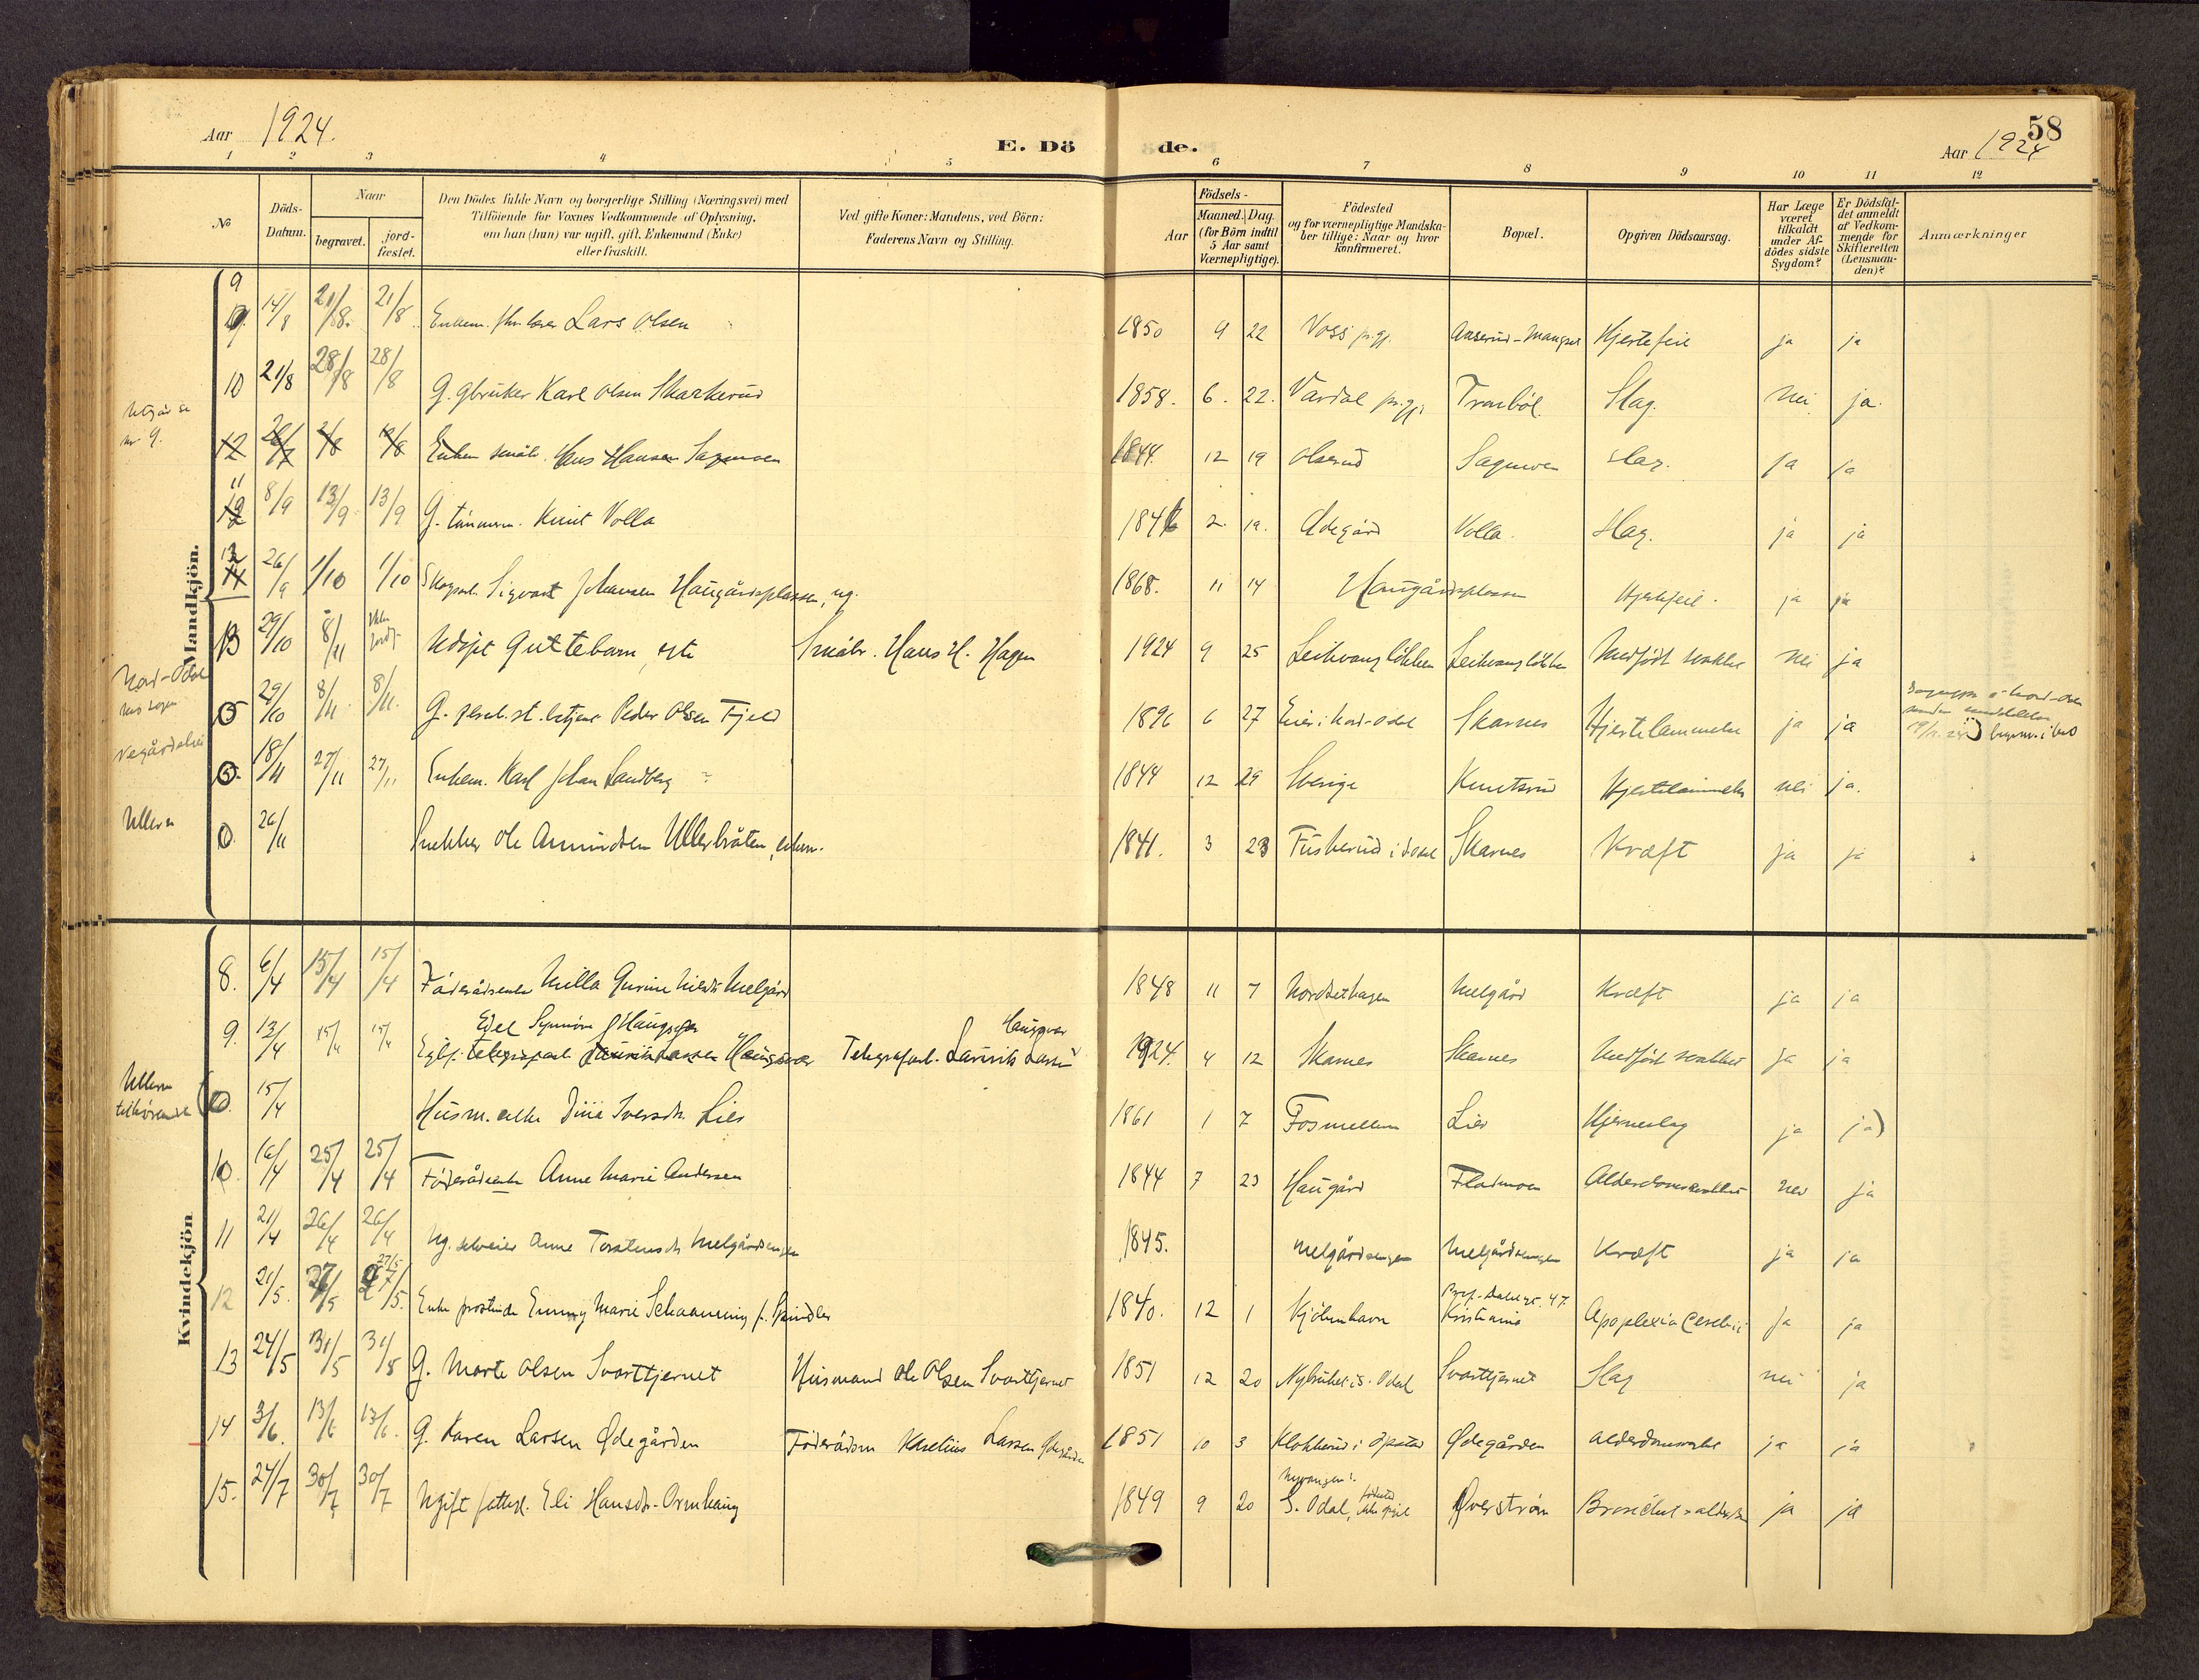 58
Aar 1924.
E. Dö de.
Aar 1924
1 2 3 4 5 6 7 8 9 10 11 12
No
Döds-Datum.
Naar
begravet.
jord-fæstet.
Den Dödes fulde Navn og borgerlige Stilling (Næringsvei) med
Tilföiende for Voxnes Vedkommende af Oplysning,
om han (hun) var ugift, gift, Enkemand (Enke)
eller fraskilt.
Ved gifte Koner: Mandens, ved Börn:
Faderens Navn og Stilling.
Aar
Födsels-
Maaned. Dag.
(for Börn indtil
5 Aar samt
Værnepligtige).
Födested
og for værnepligtige Mandska-
ber tillige: Naar og hvor
konfirmeret.
Bopæl.
Opgiven Dödsaarsag.
Har Læge
været
tilkaldt
under Af-
dödes sidste
Sygdom?
Er Dödsfal-
det anmeldt
af Vedkom-
mende for
Skifteretten
(Lensman-
den)?
Anmærkninger
Mandkjön.
9 14/8 21/8. 21/8 Lars Olsen 1850 9 22 Voss pr.gj. Aaserud-Mangset Hjertefeil ja ja
10 21/8 28/8 28/8 G. gbruker Karl Olsen Skarkerud 1858. 6. 22. Vardal pr.gj. Tronböl. Slag. Nei ja.
Utgår se
nr 9.
12 Hans Hansen Sagmoen 1844. 12 19 Olserud Sagmoen Slag. ja ja
11 8/9 13/9 13/9 G. tömmerm. Knut Volla 1846 2. 19. Ødegård Volla. Slag. ja ja
12 26/9 1/10 1/10 Sigvart Johansen Haugårdsplassen, ug. 1868. 11 14 Haugårdsplassen Hjertefeil. ja ja
13 29/10 8/11 Udöpt Guttebarn Småbr. Hans H. Hagen 1924 9 25 Medfödt svakhet nei ja
Nord-Odal
29/10 8/11 8/11. G. Peder Olsen Fjeld 1896 6 27 Skarnes Hjertelammelse ja ja
18/11 27/11 27/11 Enkem. Karl Johan Sandberg 1844 12 29 Sverige Knutsrud Hjertelammelse nei ja.
Ullern
26/11 Snekker Ole Amundsen Ullerbråten, enkem. 1841. 3 23 Skarnes Kræft ja ja
Kvindekjön
8. 6/4 15/4 15/4 Föderådsenke Milla Gurine Nilsdr Melgård 1848 11 7 Nordsethagen Melgård Kræft ja ja
9. 13/4 15/4 15/4 Edel Synnöve Haugsvær Telegrafarb. Laurits Larsen Haugsvær 1924. 4 12 Skarnes Skarnes Medfödt svakhet ja ja
Ullern
tilhörende
15/4 Husm. enke Dina Iversdtr. Lier 1861 1 7 Fosmellum Lier Hjerneslag ja ja)
10. 16/4 25/4 25/4 Föderådsenke Anne Marie Andersen 1844 7 23 Haugård Flatmoen Alderdomssvakhet nei ja
11 21/4 26/4 26/4 Ug. selveier Anne Torstensdr Melgårdsengen 1845. Melgårdsengen Melgårdsengen Kræft ja ja
12 21/5. 27/5 27/5. Enke prostinde Emmy Marie Schaanning f. Spindler 1840. 12 1 Kjöbenhavn Prof. Dahlsgt. 47. Kristiania Apoplexia Cerebri ja ja
13 24/5 31/5 31/5 G. Marte Olsen Svarttjernet Husmand Ole Olsen Svarttjernet 1851 12 20 Nybruket i S. Odal Svarttjernet Slag nei ja
14 3/6. 13/6 13/6. G. Karen Larsen Ødegården Föderådsm Karelius Larsen Ødegården 1851 10 3 Klokkerud i Opstad Ødegården Alderdomssvakhet ja ja
15. 24/7 30/7 30/7 Ugift Eli Hansdr. Ormhaug 1849 9 20 S. Odal, Överström ja ja